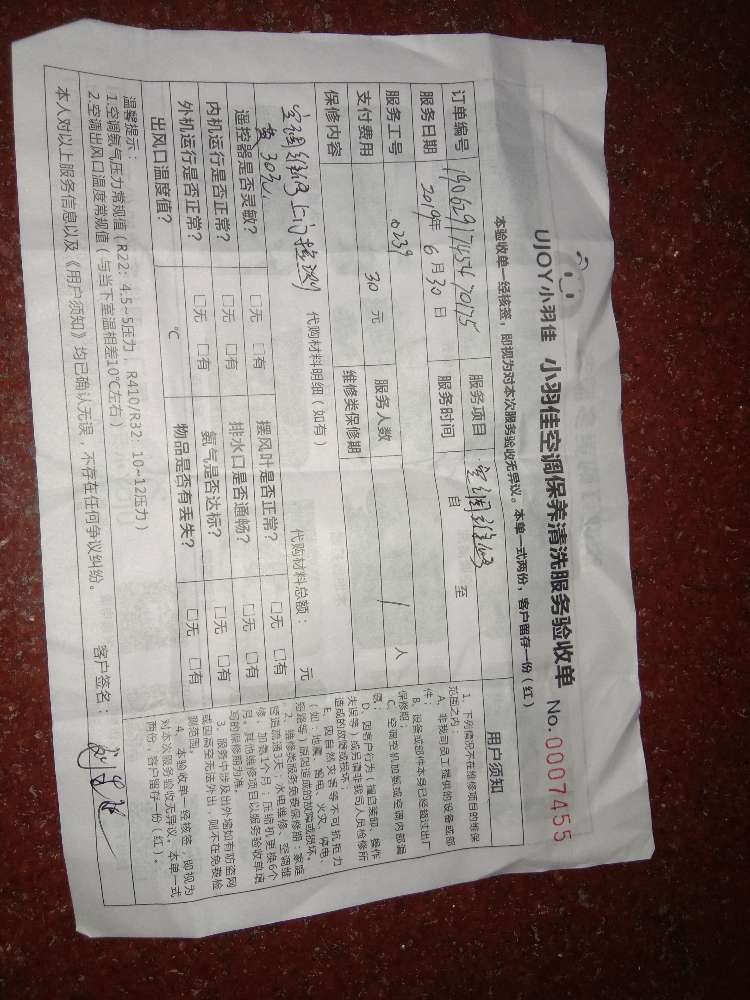 UJOY小羽佳 小羽佳空调保养清洗服务验收单 No.0007455
本验收单一经核签，即视为对本次服务验收无异议。本单一式两份，客户留存一份（红）
订单编号 服务项目 空调维修
服务日期 2019年 6月30日 服务时间 自 至
服务工号 0239
支付费用 30 元 服务人数 1 人
保修内容 维修类保修期
代购材料明细（如有） 代购材料总额： 元
空调维修上门检测
费30元
遥控器是否灵敏？ □无 □有 摆风叶是否正常？ □无 □有
内机运行是否正常？ □无 □有 排水口是否通畅？ □无 □有
外机运行是否正常？ □无 □有 氨气是否达标？ □无 □有
出风口温度值？ ℃ 物品是否有丢失？ □无 □有
温馨提示：
1.空调氨气压力常规值（R22：4.5~5压力，R410/R32：10~12压力）
2.空调出风口温度常规值（与当下室温相差10℃左右）
本人对以上服务信息以及《用户须知》均已确认无误，不存在任何争议纠纷。 客户签名：
用户须知
1、下列情况不在维修项目的维保
范围之内：
A、非我司员工提供的设备或部
件；
B、设备或部件本身已经超过出厂
保修期；
C、空调空机加氨或空调内部漏
氨；
D、因客户行为（擅自装卸、操作
失误等）或另请非我司人员检修所
造成的故障或损坏；
E、因自然灾害等不可抗拒力
（如：地震、雷电、火灾、停电、
短路等）原因造成的故障或损坏。
2、维修类服务免费保修期：家庭
管道疏通3天，水电维修、空调维
修、加氨1个月，压缩机更换6个
月。其他维修项目以服务验收单填
写的保修期为准。
3、服务中涉及出外墙如有防盗网
或因高空无法外出，则不在免费检
测范围。
4、本验收单一经核签，即视为
对本次服务验收无异议。本单一式
两份，客户留存一份（红）。